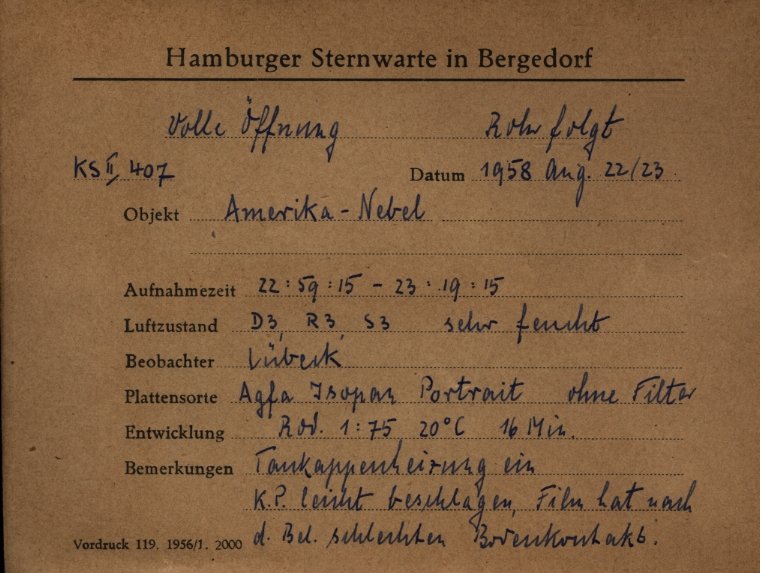 Hamburger Sternwarte in Bergedorf
Volle Öffnung Rohr folgt
KS II, 407 Datum 1958 Aug. 22/23
Objekt Amerika-Nebel
Aufnahmezeit 22:59:15 - 23:19:15
Luftzustand D3, R3, S3 sehr feucht
Beobachter Lübeck
Plattensorte Agfa Isopan Portrait ohne Filter
Entwicklung Rod. 1:75 20°C 16 Min.
Bemerkungen Taukappenheizung ein
K.P. leicht beschlagen, Film hat nach
Vordruck 119. 1956/1. 2000 d. Bel. schlechten Bodenkontakt.